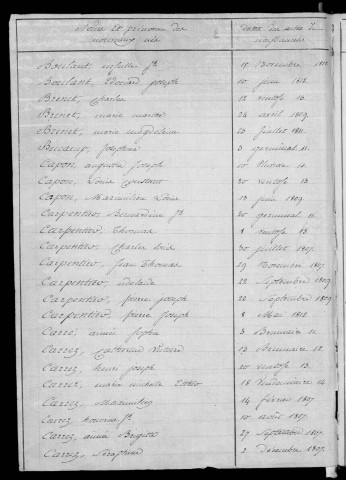 Noms et prénoms des nouveaux nés
Date des actes de naissance
Boulant joseph
Boulant, Edouard joseph 10 juin 1812.
Brinet, Charles 12 ventose 13
Brinet, marie 24 avril 1809.
Brinet, marie magdeleine 23 juillet 1811.
joséphine 3 germinal 11.
Capon, augustin Joseph 10 13.
Capon, Louis Constant 30 ventose 13
Capon, Maximilien Louis 13 juin 1809.
Carpentier Bernardine jh 20 germinal 11.
Carpentier, Thomas 8 ventose 13
Carpentier, Charles 30 juillet 1807.
Carpentier, Jean Thomas 29 Novembre 1807
Carpentier, adelaide 22 Septembre 1809
Carpentier, pierre joseph 22 Septembre 1809
Carpentier, pierre Joseph 8 Mai 1812.
Carré, aimée Sophie 3 Brumaire 12
Carrez, Catherine 13 Brumaire 12.
Carrez, henri joseph 20 ventose 13.
Carrez, marie michelle 18 Vendemiaire 14
Carrez, Maximilien 14 février 1807
Carrez 10 août 1807.
Carrez, aimée Brigitte 27 Septembre 1807
Carrez, Séraphine 2 Décembre 1807.